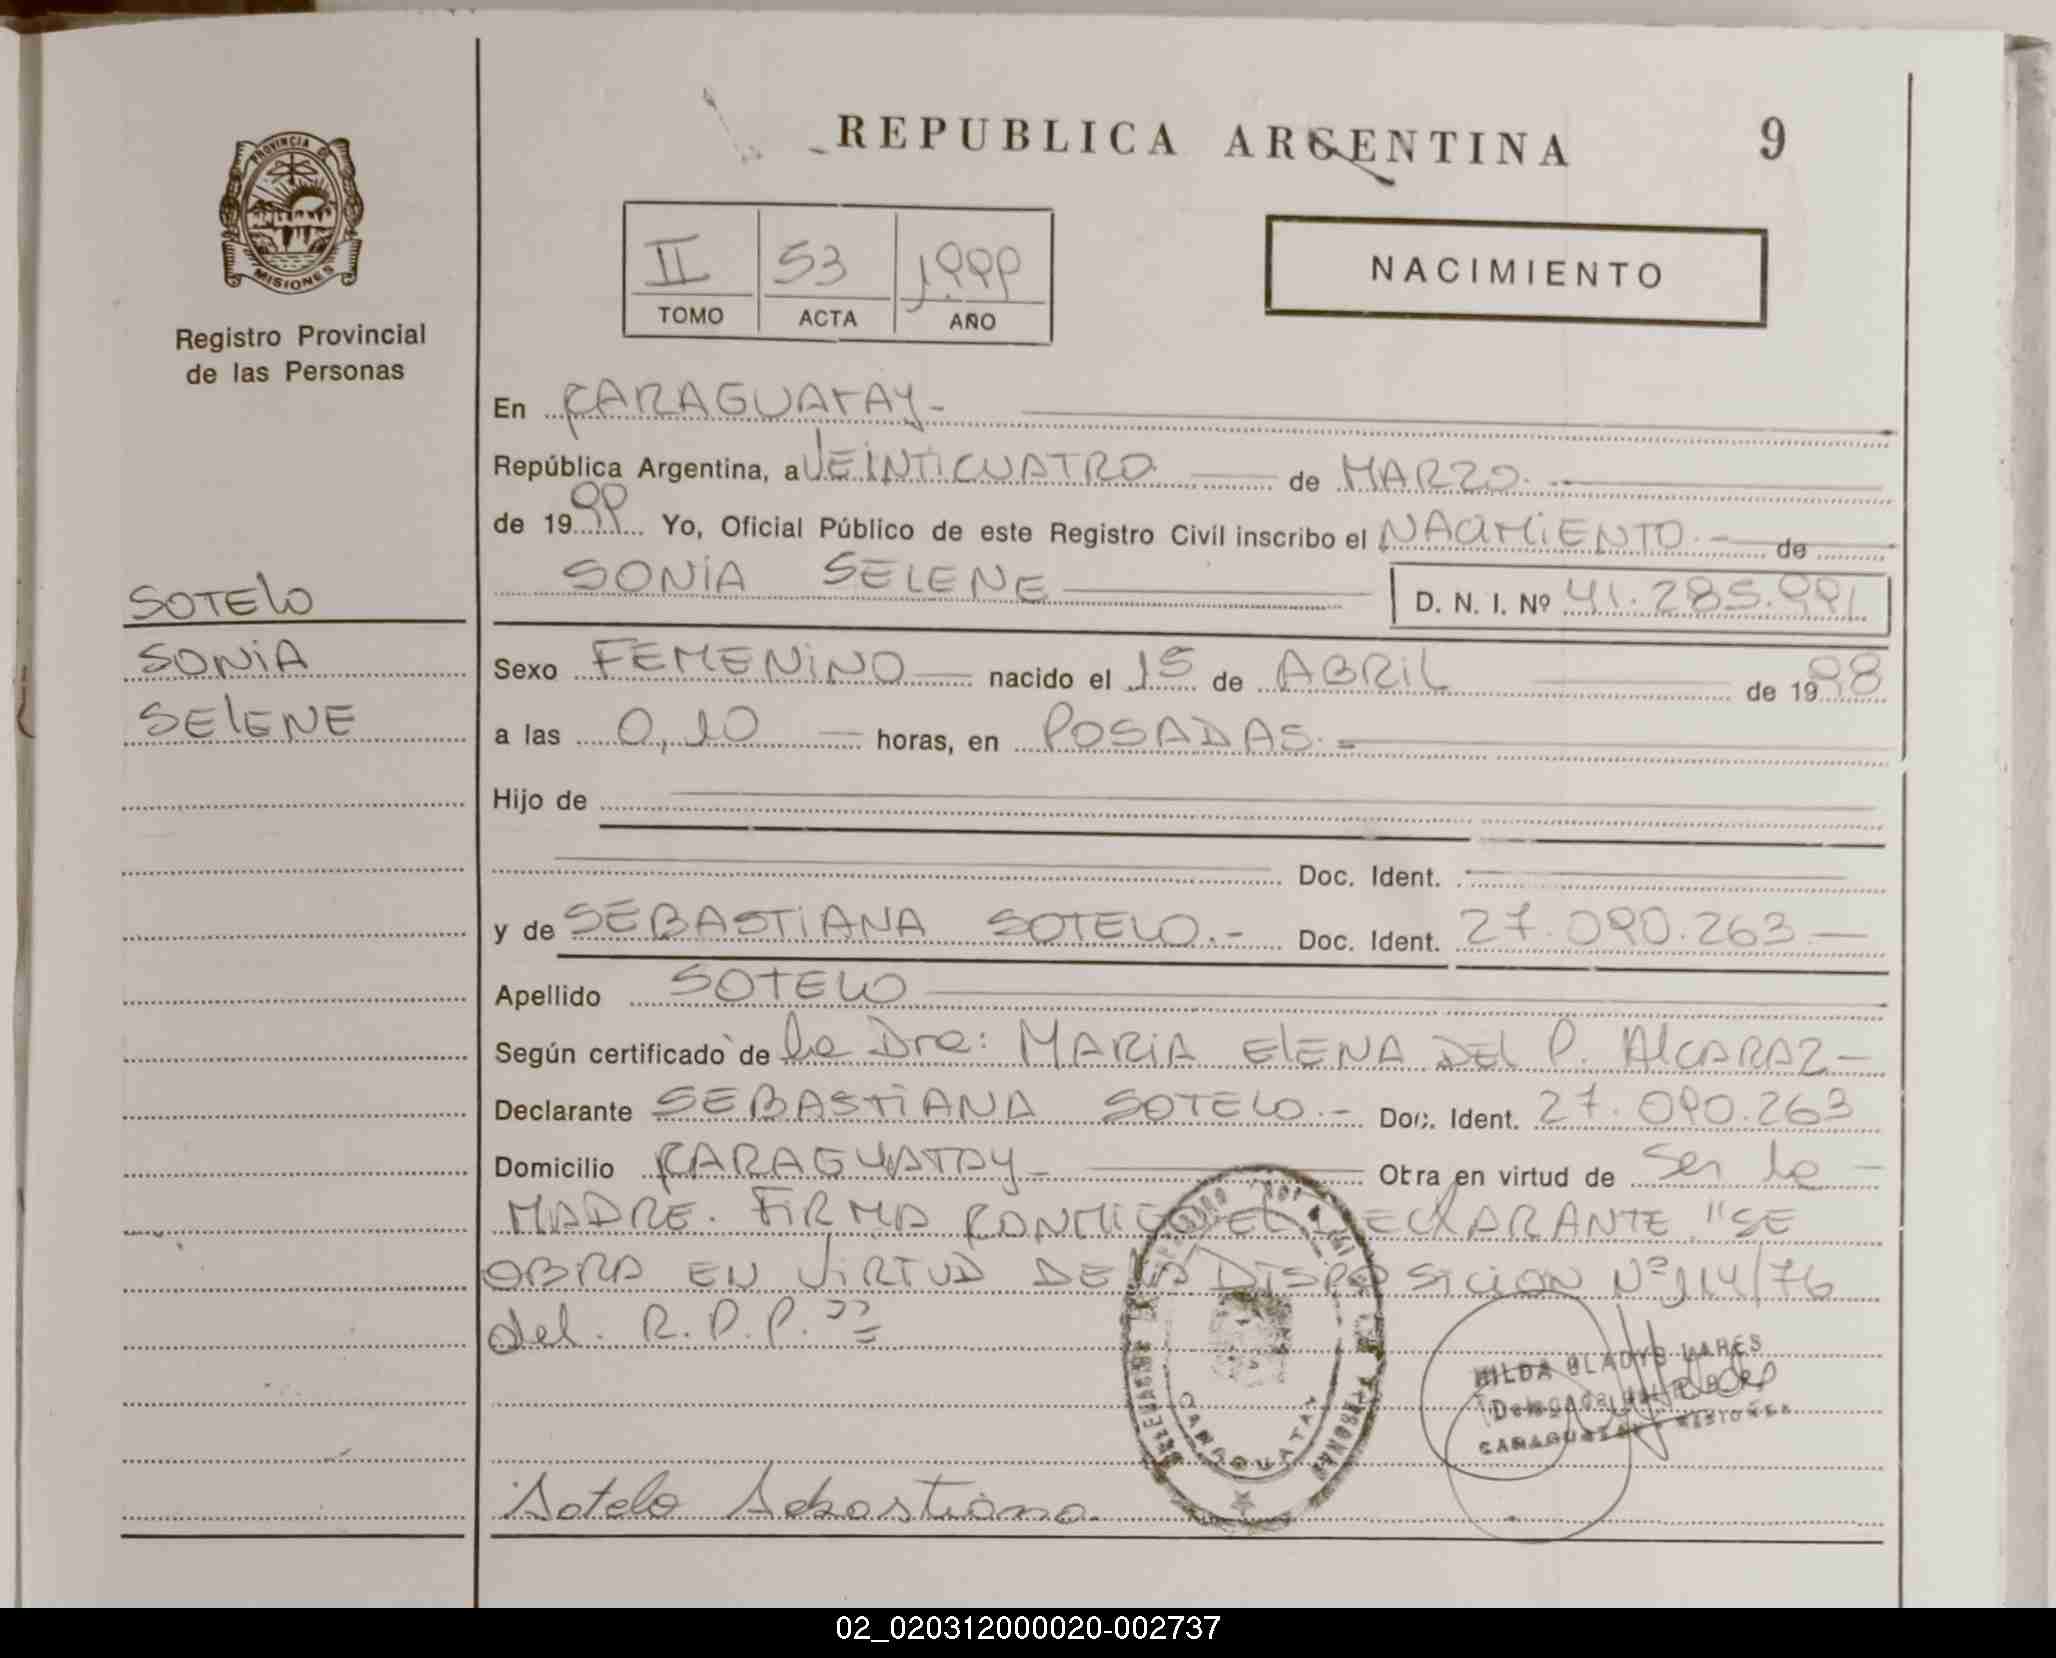 REPUBLICA ARGENTINA 9
PROVINCIA DE
MISIONES
Registro Provincial
de las Personas
II 53 1.999
TOMO ACTA AÑO
NACIMIENTO
En CARAGUATAY.-
República Argentina, a VEINTICUATRO de MARZO.-
de 1999 Yo, Oficial Público de este Registro Civil inscribo el NACIMIENTO.- de
SONIA SELENE D. N. I. Nº 41.285.991
SOTELO
SONIA
SELENE
Sexo FEMENINO nacido el 15 de ABRIL de 1998
a las 0,10 horas, en POSADAS.-
Hijo de
Doc. Ident.
y de SEBASTIANA SOTELO.- Doc. Ident. 27.090.263
Apellido SOTELO
Según certificado de la Dra: MARIA ELENA DEL P. ALCARAZ
Declarante SEBASTIANA SOTELO.- Doc. Ident. 27.090.263
Domicilio CARAGUATAY Obra en virtud de ser la
MADRE. FIRMA CONMIGO EL DECLARANTE "SE
OBRA EN VIRTUD DE LA DISPOSICION Nº 114/76
del. R.P.P."
HILDA GLADYS
Delegada
CARAGUATAY MISIONES
CARAGUATAY
Sotelo Sebastiana
02_020312000020-002737